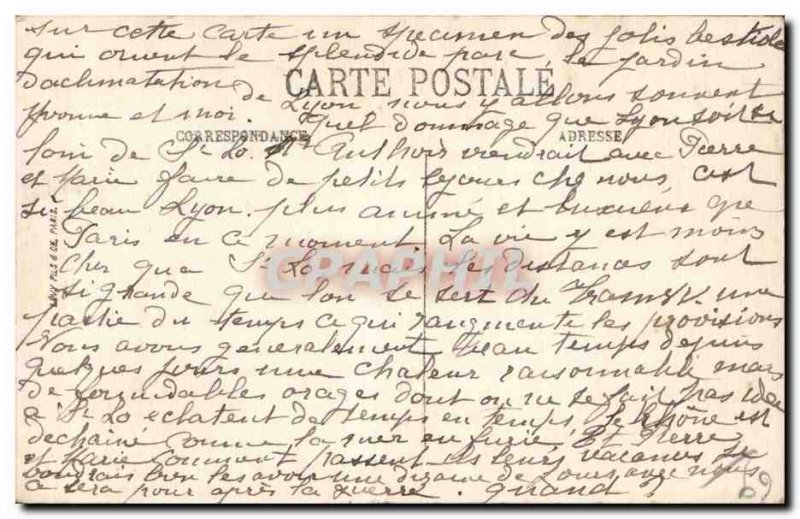 sur cette carte un specimen des jolis
qui ornent le splendide parc, le jardin
CARTE POSTALE
daclimatation de Lyon nous y allons souvent
Yvonne et moi. quel dommage que Lyon soit si
CORRESPONDANCE ADRESSE
loin de St Lo. viendrait avec Pierre
et Marie faire de petits sejours che nous, c'est
si beau Lyon. plus animé et luxueux que
Paris en ce moment La vie y est moins
cher qua St Lo, mais les distances sont
si grande que lon se sert du Tramway une
partie du temps ce qui augmente les provisions
Nous avons generalement beau temps depuis
quelques jours une chaleur raisonnable mais
de formidables orages dont on ne se fait pas idee
a St Lo eclatent de temps en temps, le Rhône est
dechainé comme la mer en furie. Et Pierre
et Marie comment passent ils leurs vacances Je
voudrais bien les avoir une dizaine de jours avec nous
ce sera pour après la guerre. quand
LEVY FILS & CIE, PARIS
CPAPHIL
69